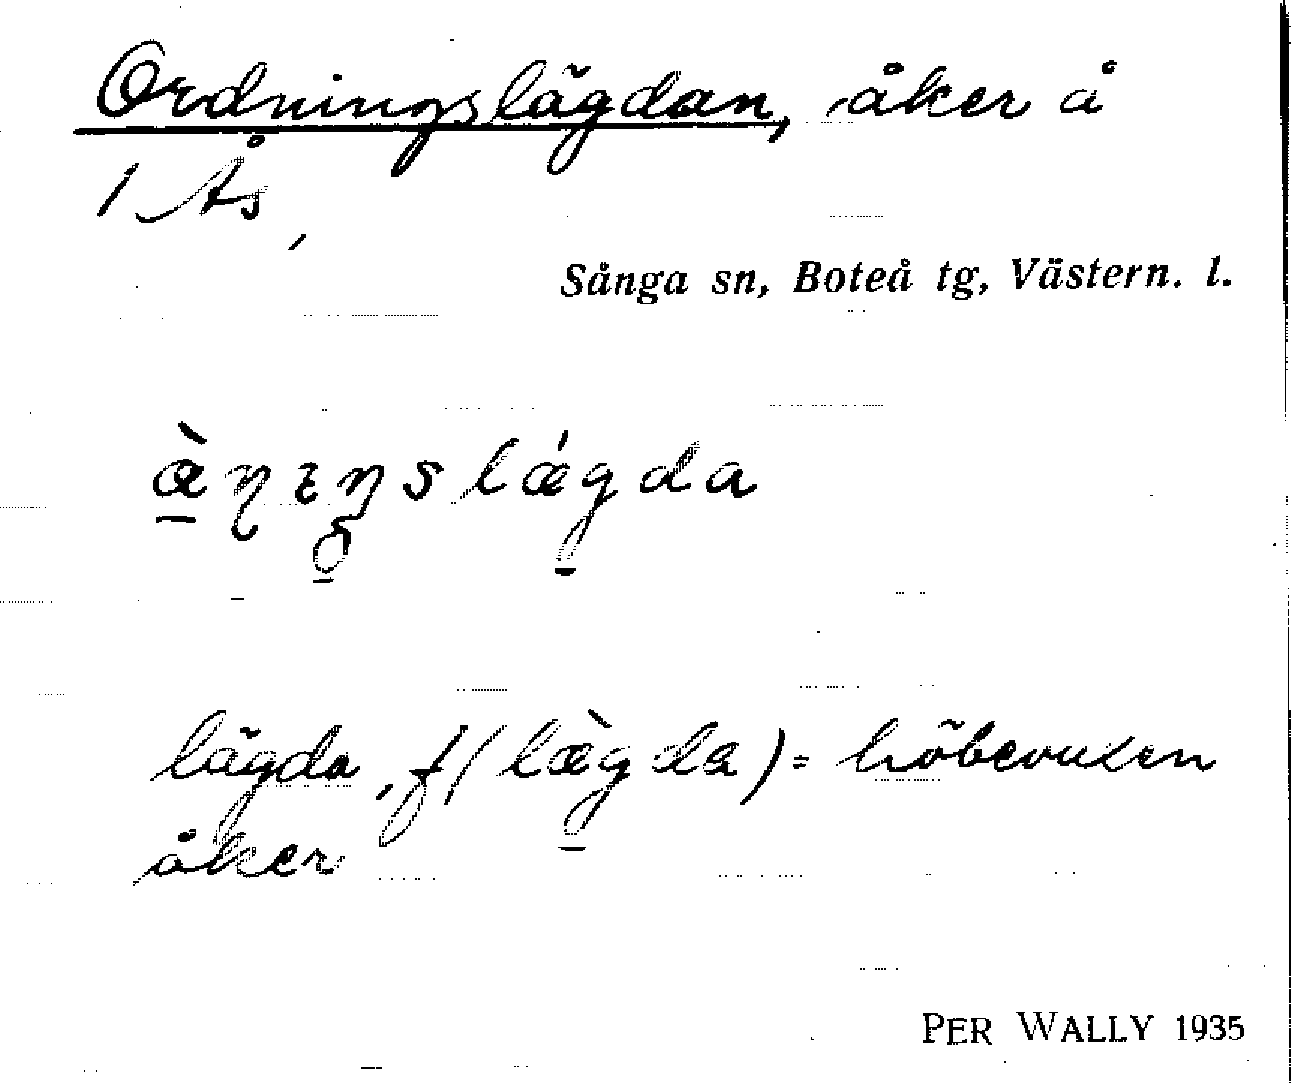 Ordningslägdan, åker å
1 Ås,
Sånga sn, Boteå tg, Västern. l.
lägda, f (læ̀gda) = höbevuxen
åker
PER WALLY 1935